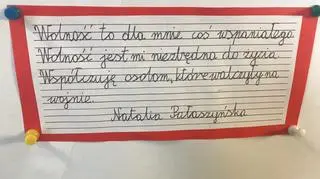 Wolność to dla mnie coś wspaniałego.
Wolność jest mi niezbędna do życia.
Współczuję osobom, które walczyły na
wojnie.
Natalia Pułaszyńska